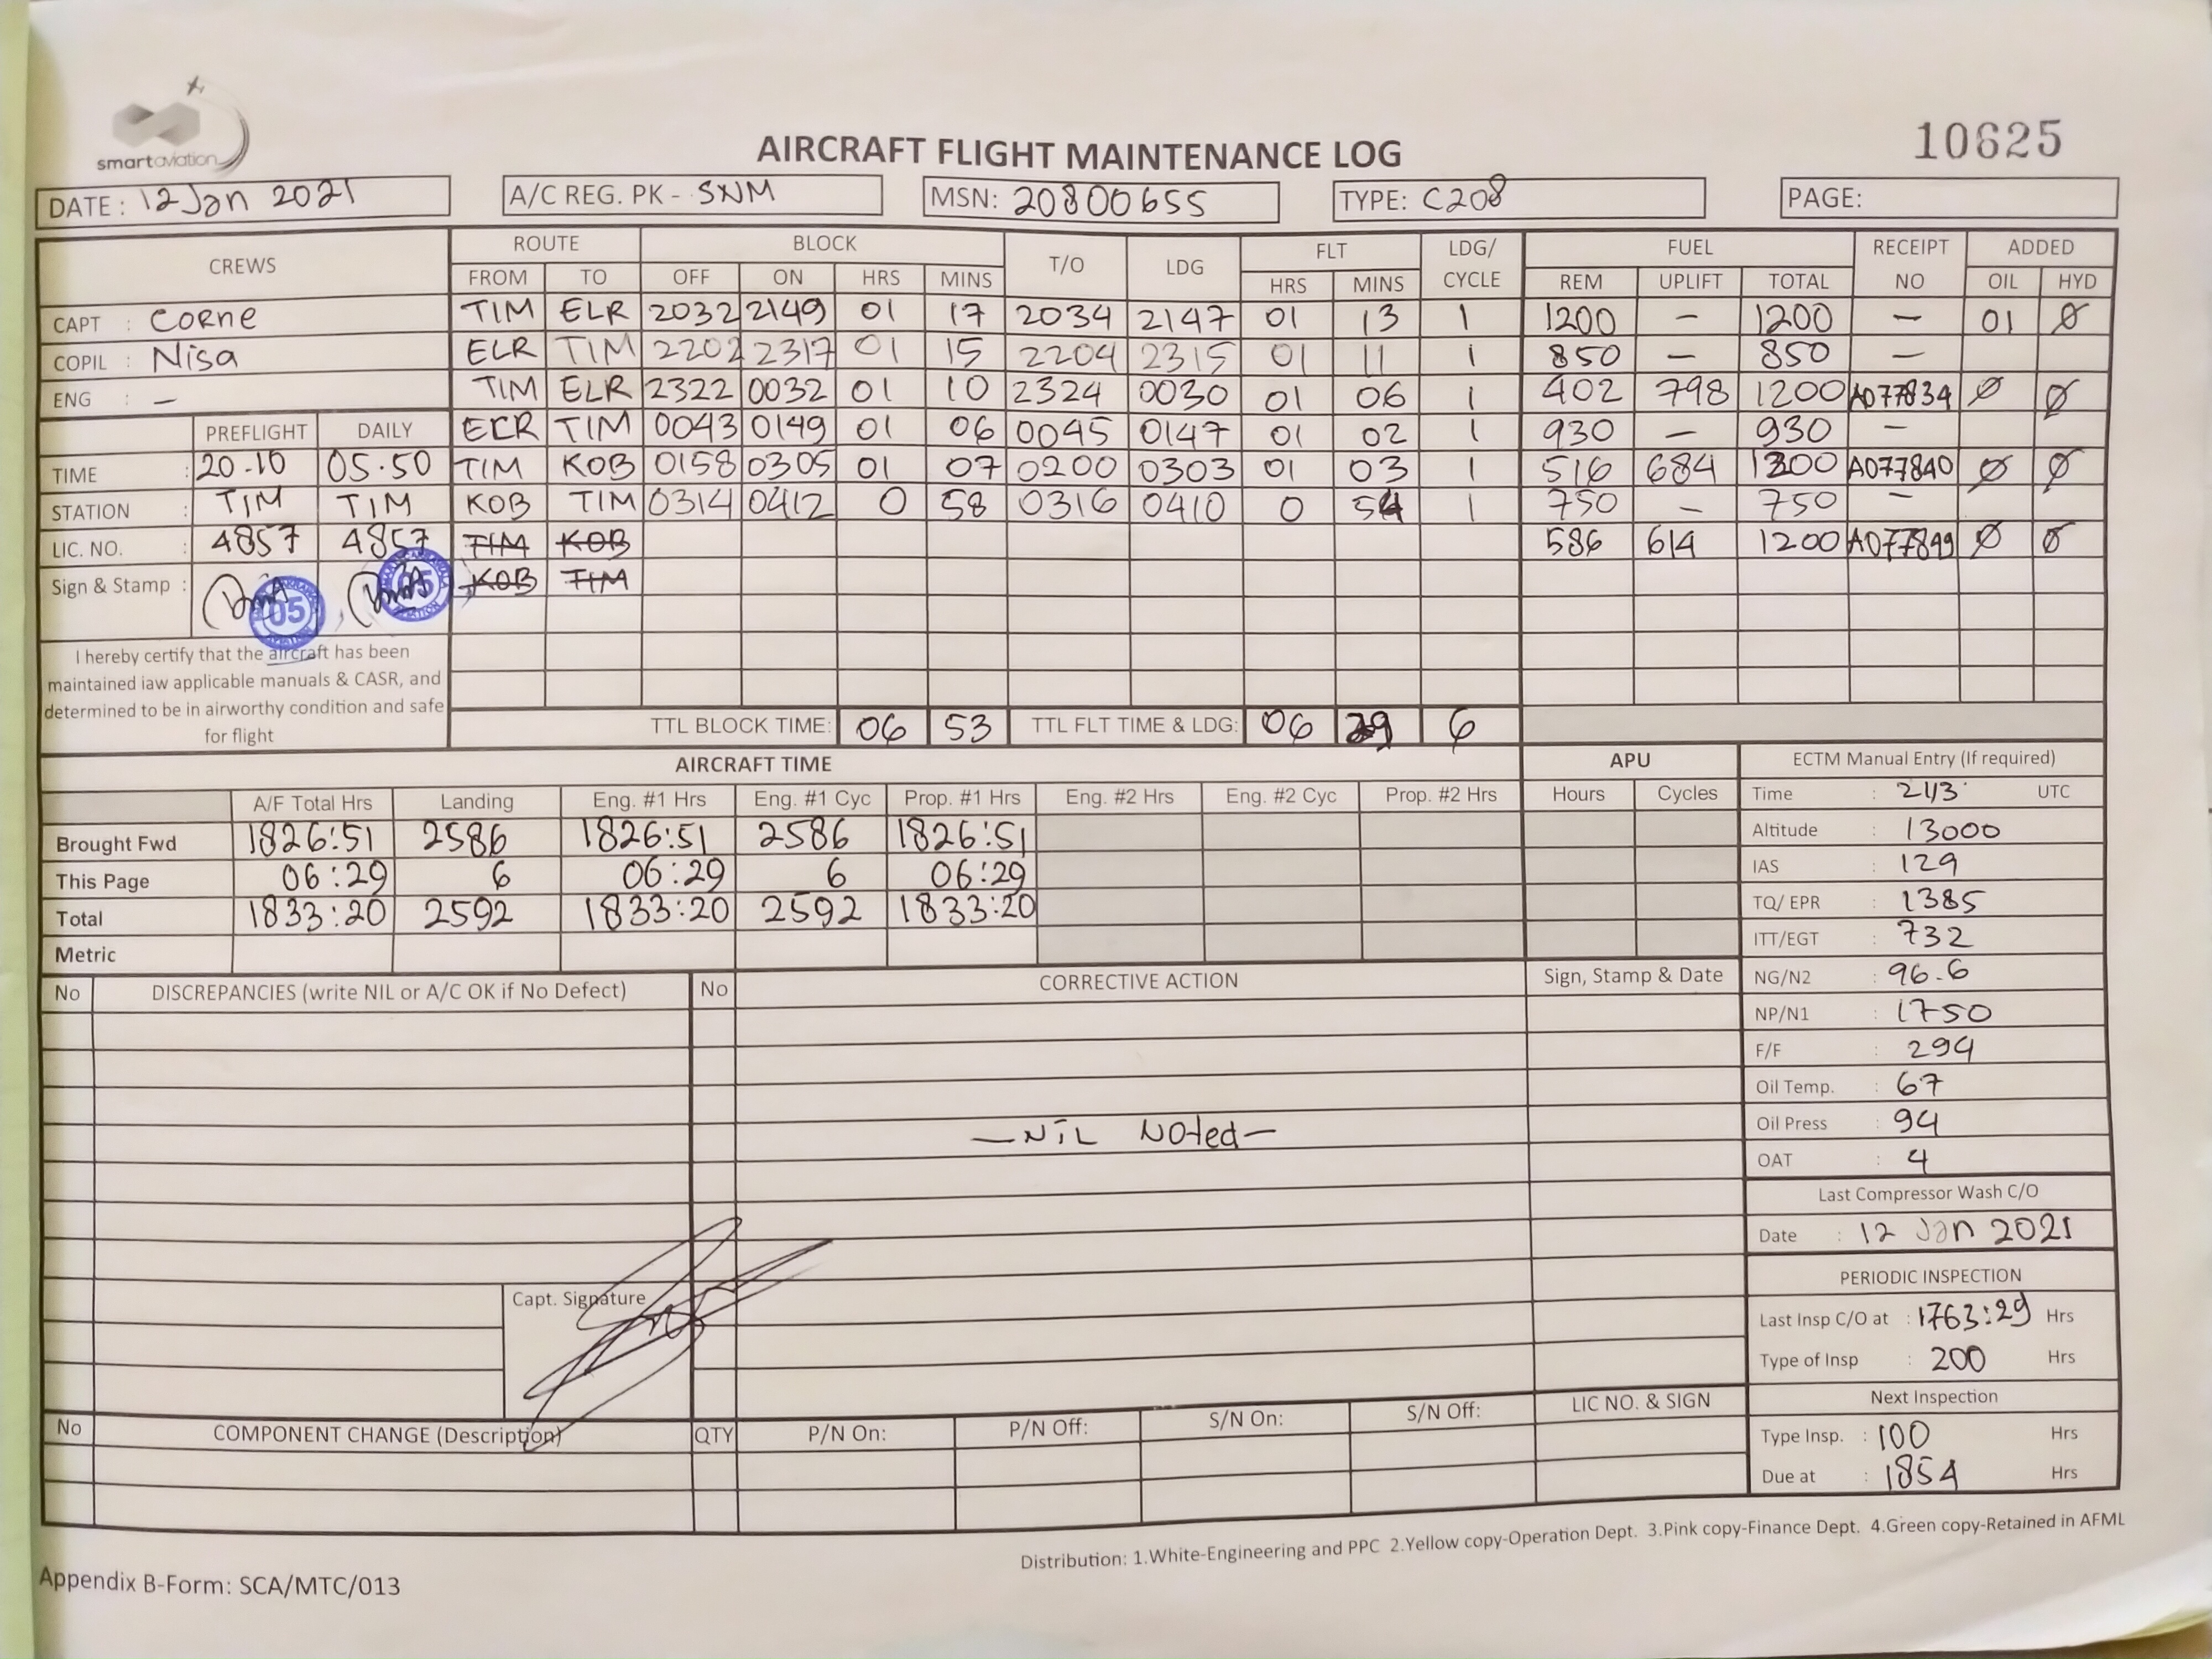 smartaviation
10625
AIRCRAFT FLIGHT MAINTENANCE LOG
DATE : 12 Jan 2021 A/C REG. PK - SNM MSN: 20800655 TYPE: C208 PAGE:
CREWS ROUTE BLOCK T/O LDG FLT LDG/ CYCLE FUEL RECEIPT NO ADDED
FROM TO OFF ON HRS MINS HRS MINS REM UPLIFT TOTAL OIL HYD
CAPT : Corne TIM ELR 2032 2149 01 17 2034 2147 01 13 1 1200 - 1200 - 01 Ø
COPIL : Nisa ELR TIM 2202 2317 01 15 2204 2315 01 11 1 850 - 850 -
ENG : - TIM ELR 2322 0032 01 10 2324 0030 01 06 1 402 798 1200 A077834 Ø Ø
PREFLIGHT DAILY ELR TIM 0043 0149 01 06 0045 0147 01 02 1 930 - 930 -
TIME : 20.10 05.50 TIM KOB 0158 0305 01 07 0200 0303 01 03 1 516 684 1200 A077840 Ø Ø
STATION : TIM TIM KOB TIM 0314 0412 0 58 0316 0410 0 54 1 750 - 750 -
LIC. NO. : 4857 4857 TIM KOB 586 614 1200 A077849 Ø Ø
Sign & Stamp : 05 05 KOB TIM
I hereby certify that the aircraft has been
maintained iaw applicable manuals & CASR, and
determined to be in airworthy condition and safe
for flight
TTL BLOCK TIME: 06 53 TTL FLT TIME & LDG: 06 29 6
AIRCRAFT TIME APU ECTM Manual Entry (If required)
A/F Total Hrs Landing Eng. #1 Hrs Eng. #1 Cyc Prop. #1 Hrs Eng. #2 Hrs Eng. #2 Cyc Prop. #2 Hrs Hours Cycles Time : 2113 UTC
Brought Fwd 1826:51 2586 1826:51 2586 1826:51 Altitude : 13000
This Page 06:29 6 06:29 6 06:29 IAS : 129
Total 1833:20 2592 1833:20 2592 1833:20 TQ/ EPR : 1385
Metric ITT/EGT : 732
No DISCREPANCIES (write NIL or A/C OK if No Defect) No CORRECTIVE ACTION Sign, Stamp & Date NG/N2 : 96.6
NP/N1 : 1750
F/F : 294
Oil Temp. : 67
- NIL Noted - Oil Press : 94
OAT : 4
Last Compressor Wash C/O
Date : 12 Jan 2021
PERIODIC INSPECTION
Capt. Signature Last Insp C/O at : 1763:29 Hrs
Type of Insp : 200 Hrs
Next Inspection
No COMPONENT CHANGE (Description) QTY P/N On: P/N Off: S/N On: S/N Off: LIC NO. & SIGN
Type Insp. : 100 Hrs
Due at : 1854 Hrs
Distribution: 1.White-Engineering and PPC 2.Yellow copy-Operation Dept. 3.Pink copy-Finance Dept. 4.Green copy-Retained in AFML
Appendix B-Form: SCA/MTC/013